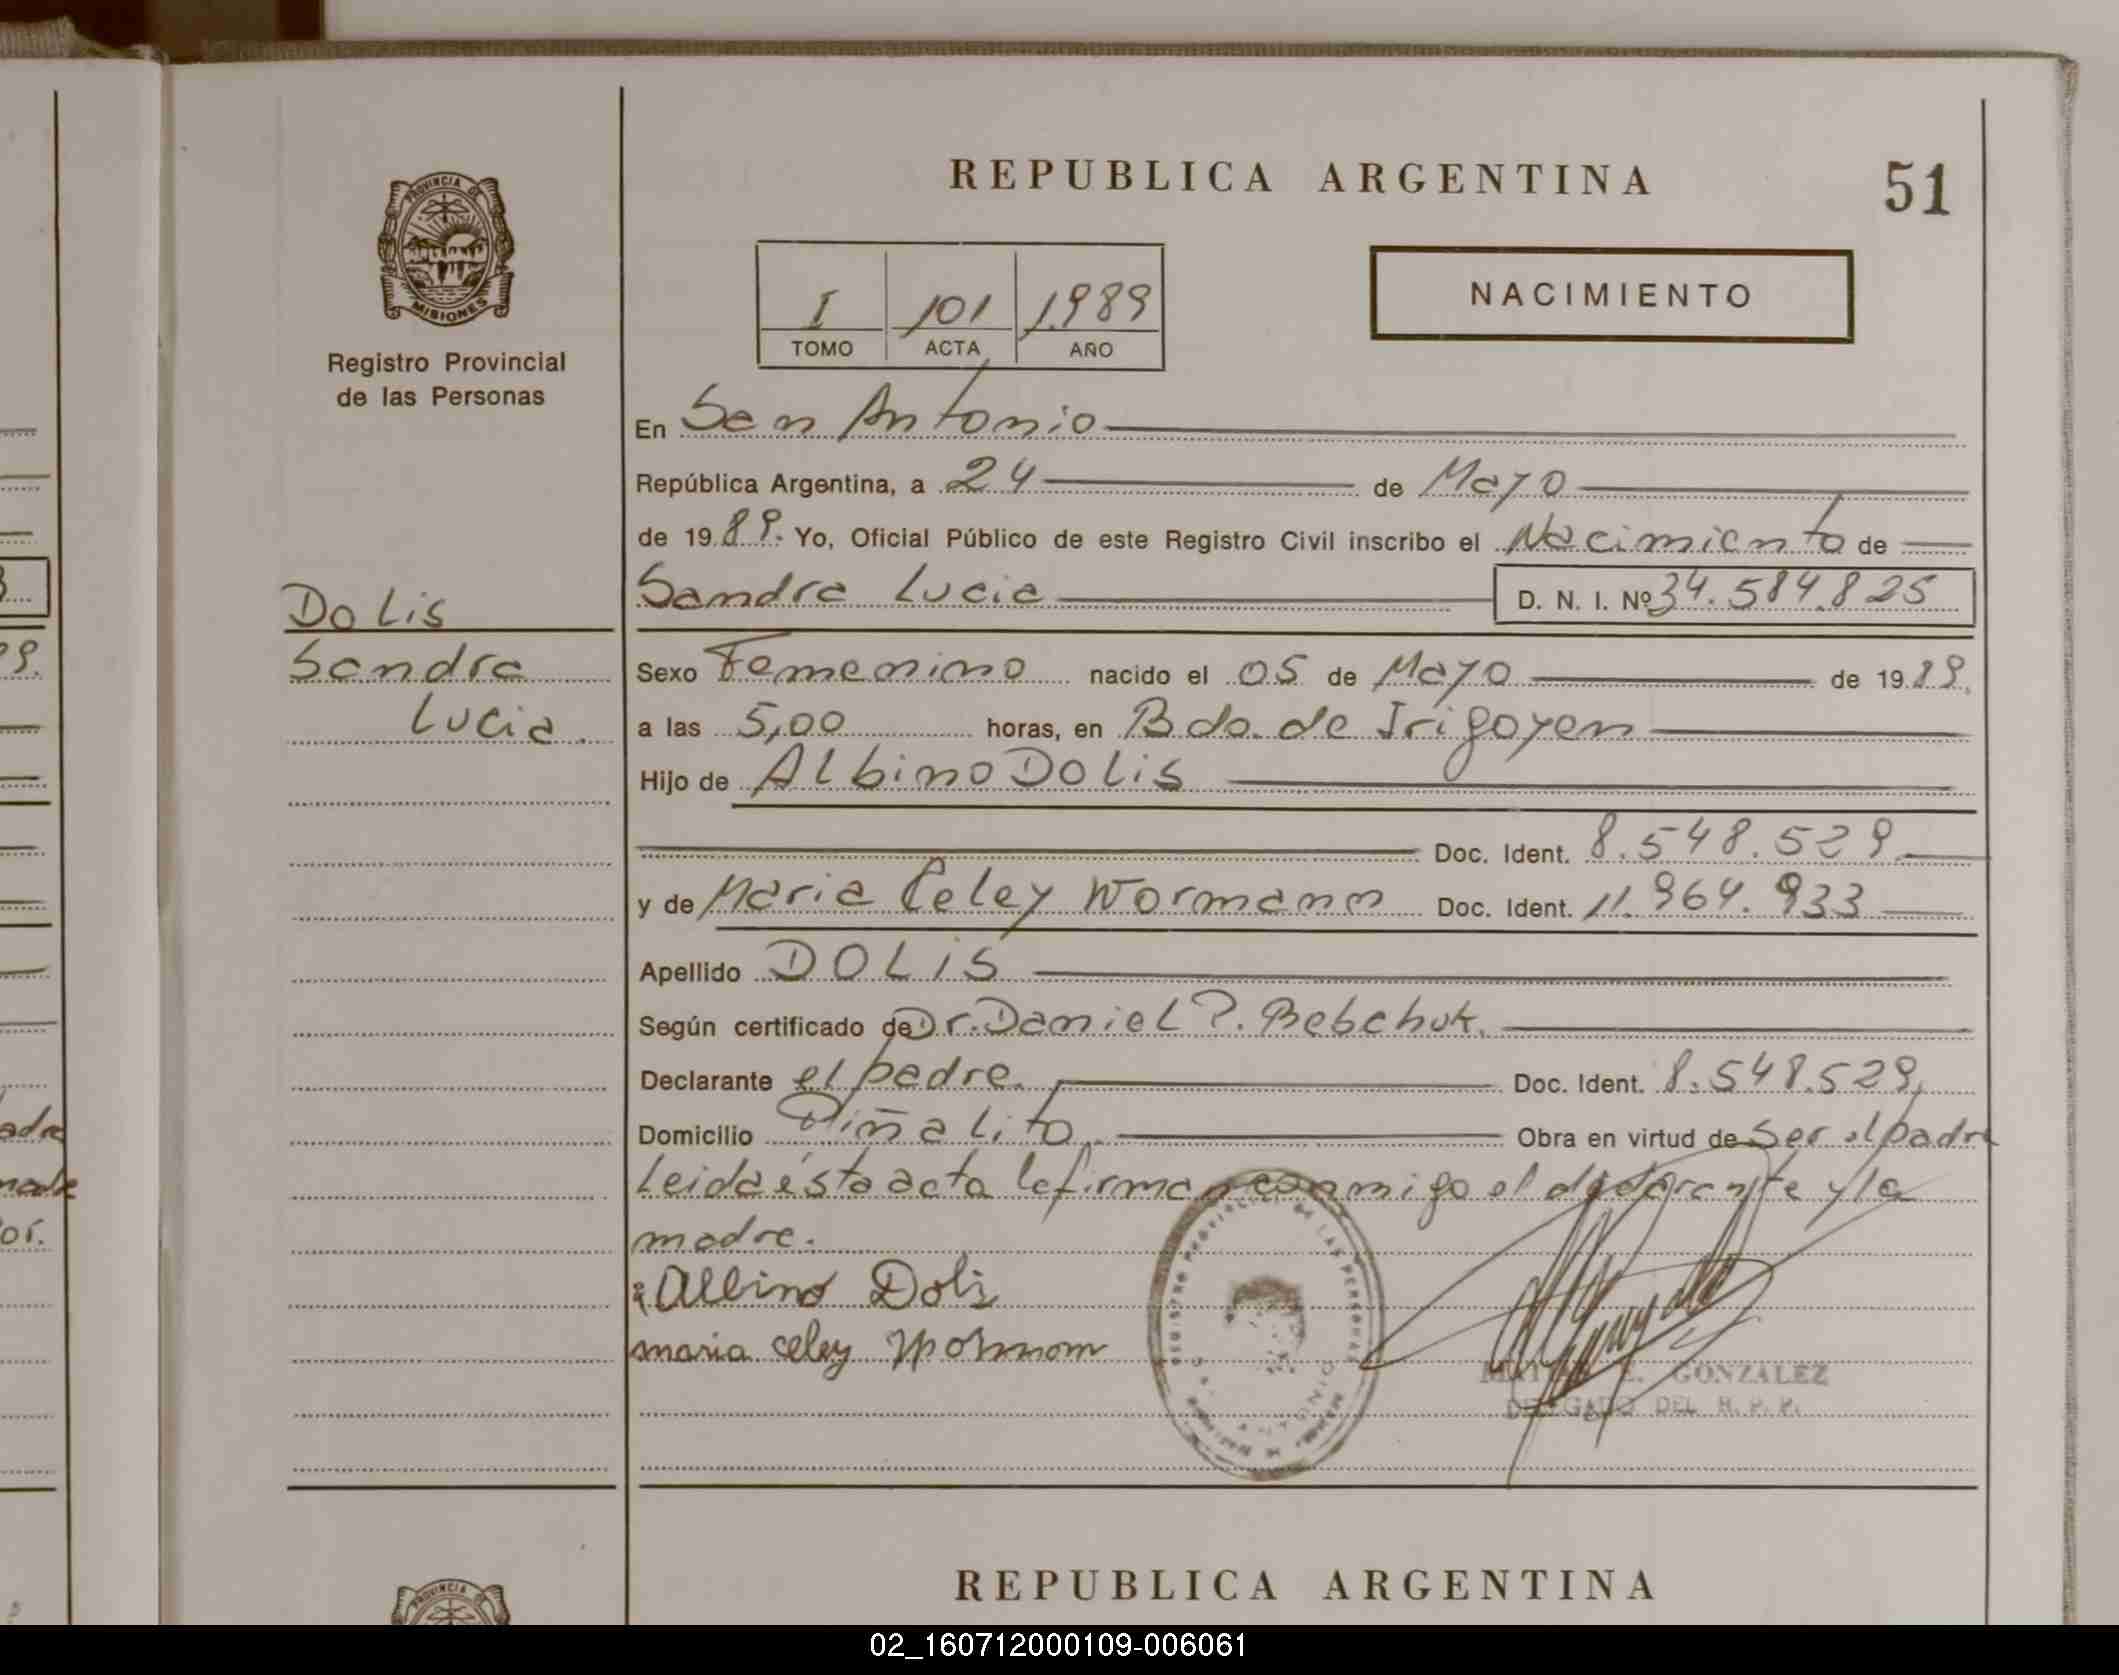 REPUBLICA ARGENTINA
51
PROVINCIA DE
MISIONES
Registro Provincial
de las Personas
I 101 1989
TOMO ACTA AÑO
NACIMIENTO
En San Antonio
República Argentina, a 24 de Mayo
de 1989. Yo, Oficial Público de este Registro Civil inscribo el Nacimiento de
Dolis
Sandra
Lucia.
Sandra Lucia D. N. I. Nº 34.584.825
Sexo Femenino nacido el 05 de Mayo de 1989.
a las 5,00 horas, en Bdo. de Irigoyen
Hijo de Albino Dolis
Doc. Ident. 8.548.529
y de Maria Celey Wormann Doc. Ident. 11.964.933
Apellido DOLIS
Según certificado de Dr. Daniel P. Bebchuk.
Declarante el padre. Doc. Ident. 8.548.529,
Domicilio Piñalito. Obra en virtud de ser el padre
Leida ésta acta la firman conmigo el declarante y la
madre.
Albino Dolis
maria celey
GONZALEZ
DELEGADO DEL R. P. P.
REPUBLICA ARGENTINA
PROVINCIA
02_160712000109-006061